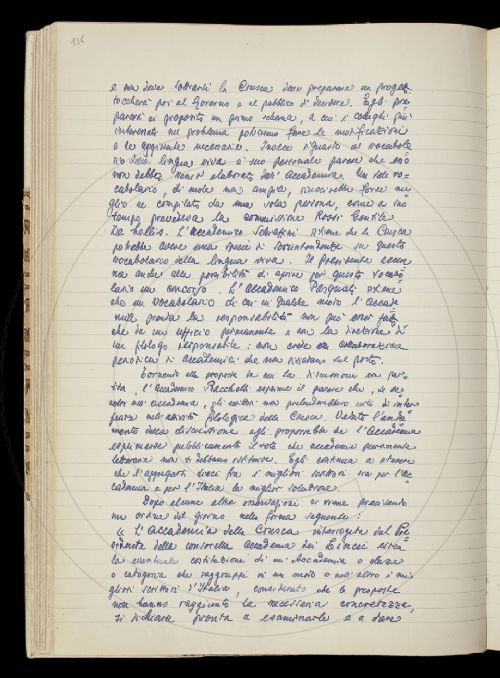 136
e ma deve trattarsi la Crusca deve preparare un proget-
toccherà poi al Governo e al pubblico di decidere. Egli pre-
parerà in proposito un primo schema, a cui i colleghi più
interessati nel problema potranno fare le modificazioni
o le aggiunte necessarie. Invece riguardo al vocabola-
rio della lingua viva è suo personale parere che esso
non debba venir elaborato dall'Accademia. Un tale vo-
cabolario, di mole non ampia, riuscirebbe forse me-
glio se compilato da una sola persona, come a suo
tempo prevedeva la commissione Rossi Gentile
De Lollis. L'accademico Schiaffini ritiene che la Crusca
potrebbe avere una specie di sovrintendenza su questo
vocabolario della lingua viva. Il presidente accen-
na anche alla possibilità di aprire per questo vocabo-
lario un concorso. L'Accademico Pasquali
che un vocabolario di cui in qualche modo l'Accade-
mia prenda la responsabilità non può esser fatto
che da un ufficio permanente e con la direzione di
un filologo responsabile: non crede
periodica di accademici che non risiedano sul posto.
Tornando alla proposta da cui la discussione era par-
tita, l'Accademico Pancrazi esprime il parere che, se
nell'accademia, gli scrittori non pretenderebbero certo di inter-
ferire nell'attività filologica della Crusca. Veduto l'anda-
mento della discussione egli proporrebbe che l'Accademia
esprimesse pubblicamente il voto che accademie puramente
letterarie non si debbano istituire. Egli continua a ritenere
che l'aggregarsi dieci fra i migliori scrittori sia per l'Ac-
cademia e per l'Italia la miglior soluzione.
Dopo alcune altre osservazioni si viene precisando
un ordine del giorno nella forma seguente:
« L'Accademia della Crusca interrogata dal Pre-
sidente della consorella Accademia dei Lincei circa
la eventuale costituzione di un'Accademia o classe
o categoria che raggruppi in un modo o nell'altro i mi-
gliori scrittori d'Italia, considerato che le proposte
non hanno raggiunto la necessaria concretezza,
si dichiara pronta a esaminarle e a dare